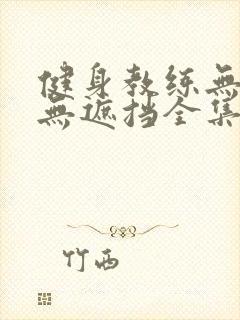 健身教练無
無遮挡全集
竹西